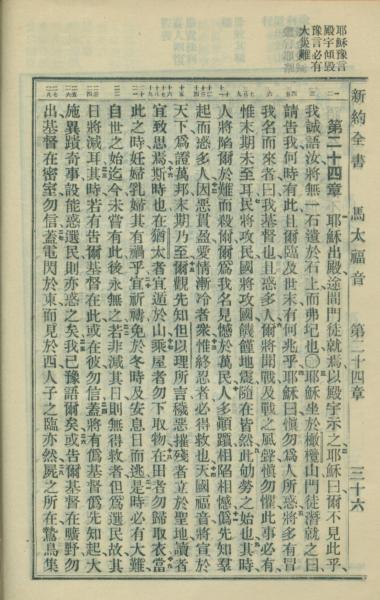 新約全書　馬太福音　第二十四章　三十六
耶穌豫言
殿宇傾毀
豫言必有
大災難
第二十四章　耶穌出殿途間門徒就焉以殿宇示之耶穌曰爾不見此乎
我誠語汝將無一石遺於石上而弗圮也〇耶穌坐於橄欖山門徒潛就之曰
請告我何時有此且爾臨及世末有何兆乎耶穌曰愼勿爲人所惑將多有冒
我名而來者曰我基督也且惑多人爾將聞戰及戰之風聲愼勿懼此事必有
惟末期未至耳民將攻民國將攻國饑饉地震隨在皆然此劬勞之始也其時
人將陷爾於難而殺爾爾爲我名見憾於萬民人多顚躓相陷相憾僞先知羣
起而惑多人因惡貫盈愛情漸冷者衆惟終忍者必得救也天國福音將宣於
天下爲證萬邦末期乃至爾觀先知但以理所言穢惡摧殘者立於聖地讀者
宜致思焉斯時也在猶太者宜遁於山乘屋者勿下取物在田者勿歸取衣當
此之時妊婦乳婦其有禍乎宜祈禱免於冬時及安息日而逃是時必有大難
自世之始迄今未嘗有此後永無之若非減其日則無得救者但爲選民故其
日將減耳其時若有告爾基督在此或在彼勿信蓋將有僞基督僞先知起大
施異蹟奇事設能惑選民則亦惑之矣我已豫語爾矣或告爾基督在曠野勿
出基督在密室勿信蓋電閃於東而見於西人子之臨亦然屍之所在鷲鳥集